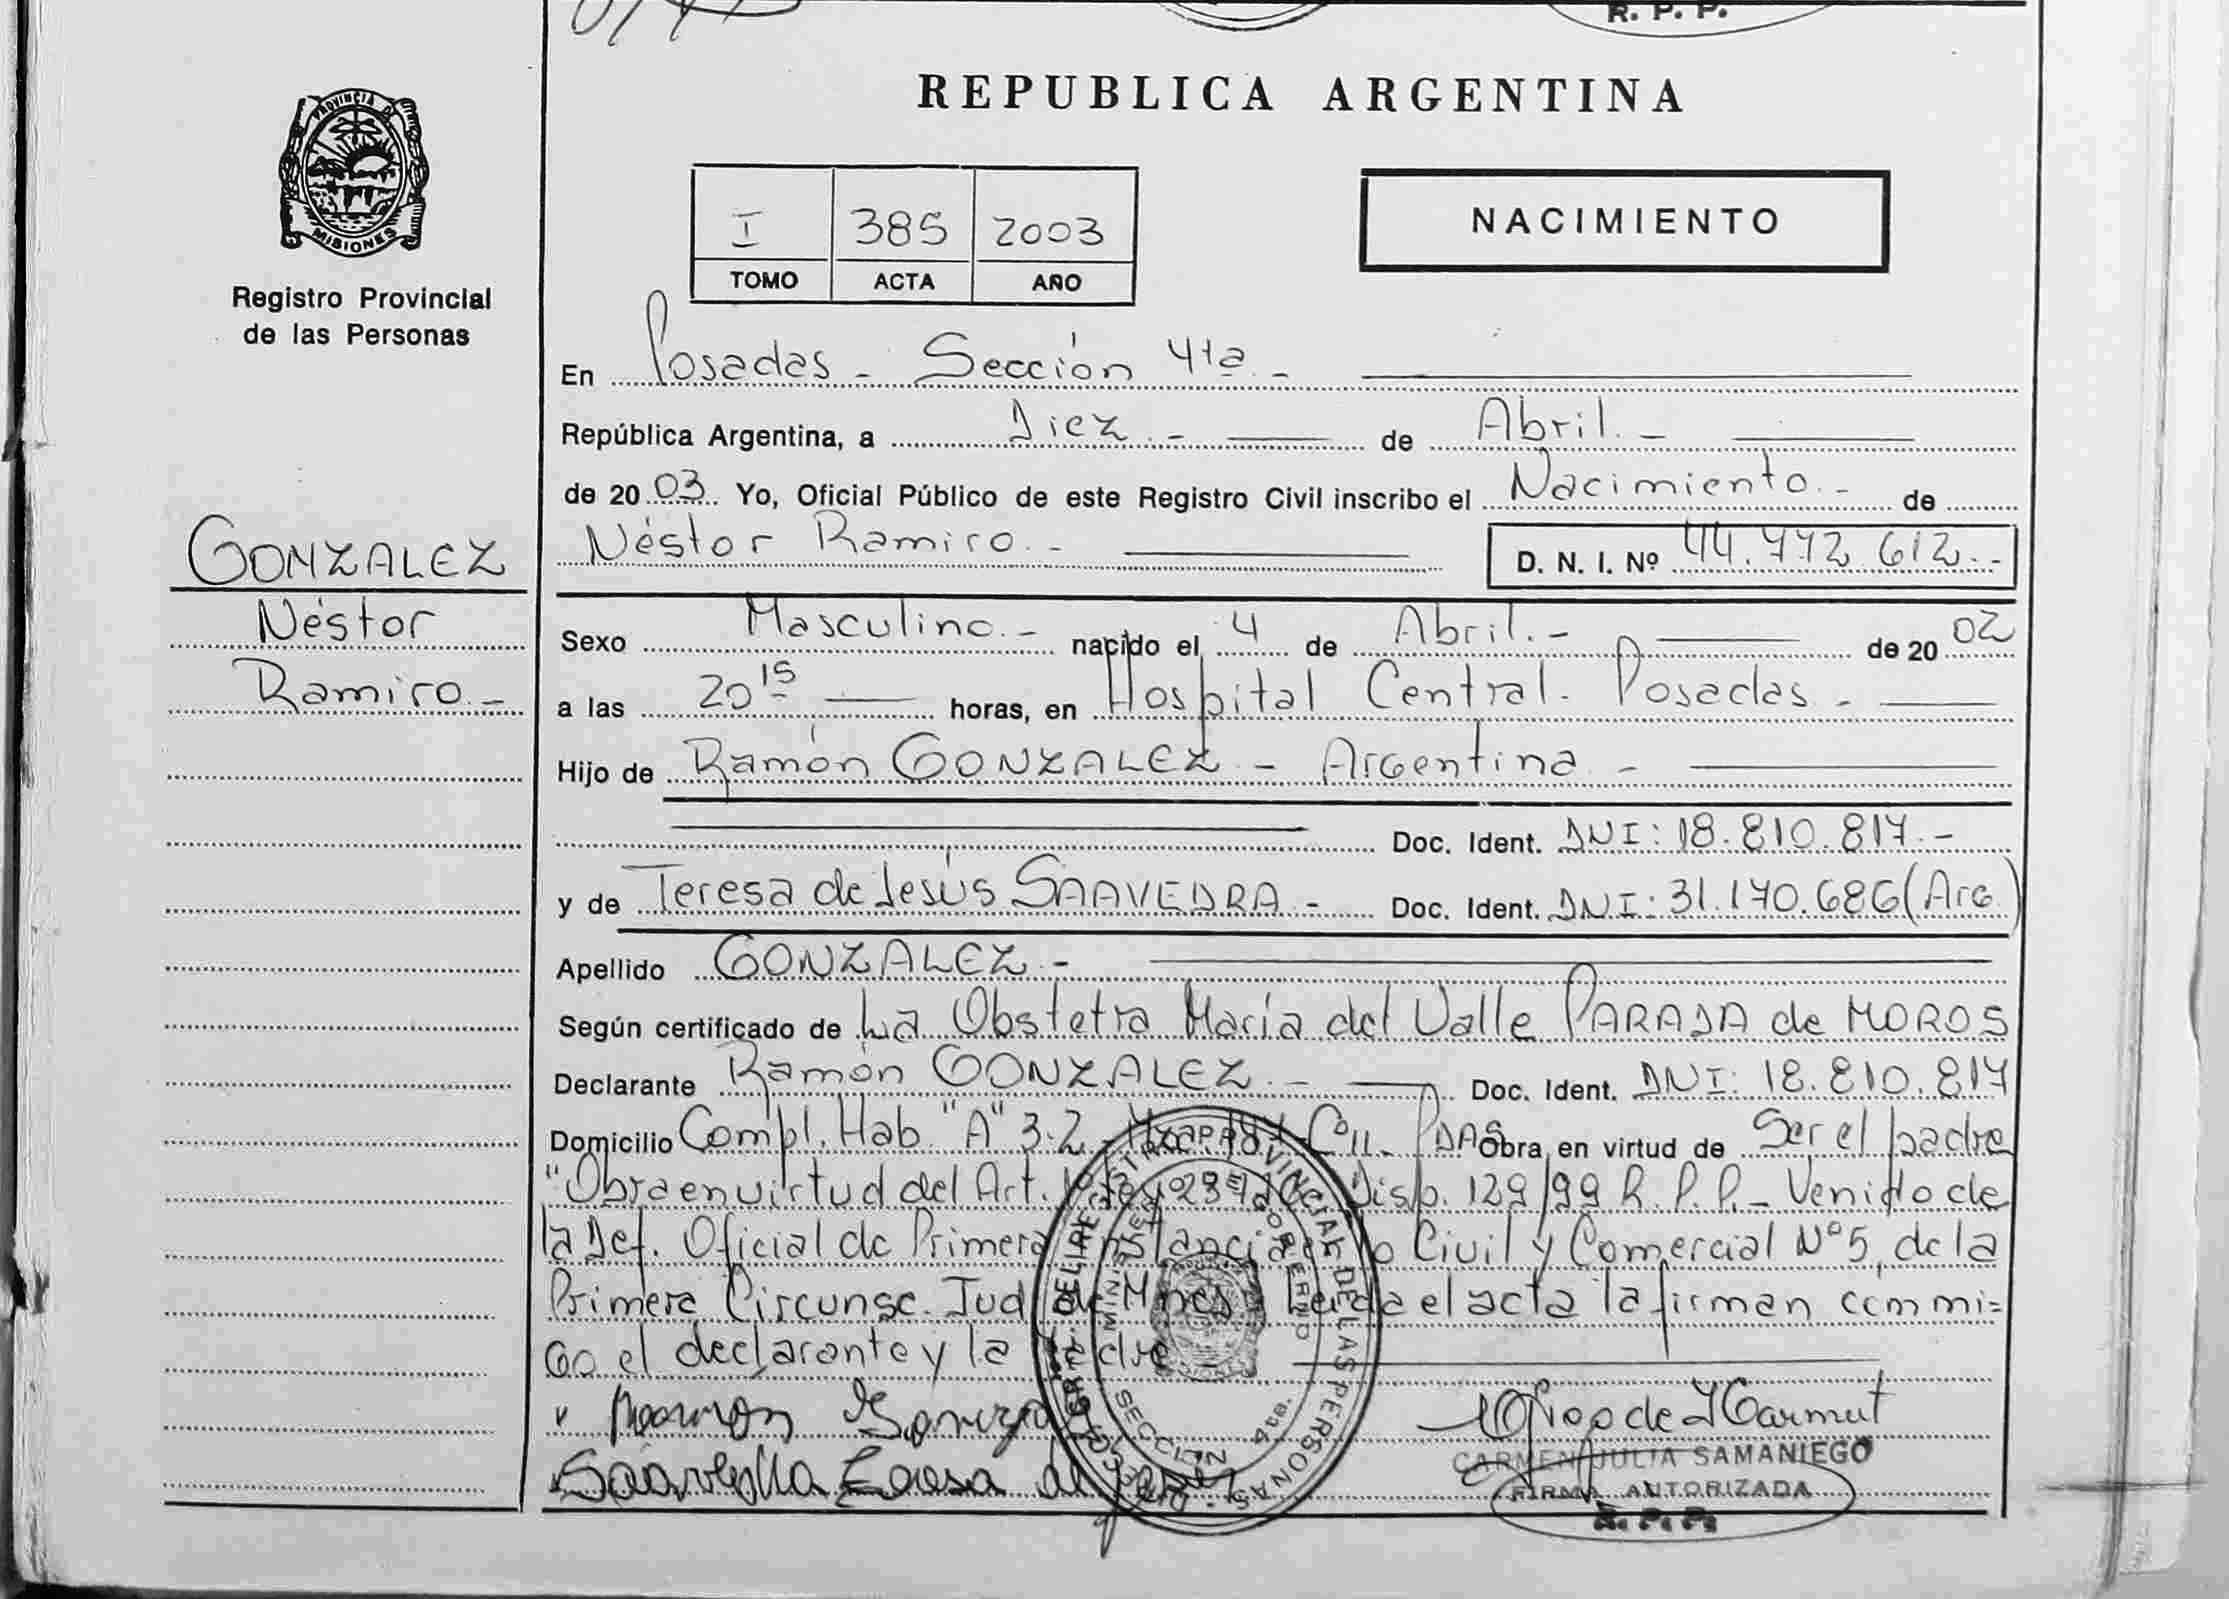 R. P. P.
PROVINCIA DE
MISIONES
Registro Provincial
de las Personas
GONZALEZ
Néstor
Ramiro.-
REPUBLICA ARGENTINA
I 385 2003
TOMO ACTA AÑO
NACIMIENTO
En Posadas - Sección 4ta.-
República Argentina, a Diez.- de Abril.-
de 2003. Yo, Oficial Público de este Registro Civil inscribo el Nacimiento.- de
Néstor Ramiro.- D. N. I. Nº 44.772.612.-
Sexo Masculino.- nacido el 4 de Abril.- de 2002
a las 20 15 horas, en Hospital Central. Posadas.-
Hijo de Ramón GONZALEZ - Argentina -
Doc. Ident. DNI: 18.810.817.-
y de Teresa de Jesús SAAVEDRA.- Doc. Ident. DNI: 31.170.686 (Arg.)
Apellido GONZALEZ.-
Según certificado de La Obstetra María del Valle PARADA de MOROS
Declarante Ramón GONZALEZ.- Doc. Ident. DNI: 18.810.817
Domicilio Compl. Hab. "A" 3-2 PDAS Obra en virtud de Ser el padre
"Obra en virtud del Art. Disp. 129/99 R.P.P.- Venido de
la Def. Oficial de Primera Instancia en lo Civil y Comercial Nº 5, de la
Primera Circunsc. Jud. de Mnes. Leída el acta la firman conmi=
go el declarante y la madre
Ramon Gonzalez
Saavedra Teresa de Jesus
REGISTRO PROVINCIAL DE LAS PERSONAS
SECCION 4ta.
CARMEN JULIA SAMANIEGO
FIRMA AUTORIZADA
R. P. P.